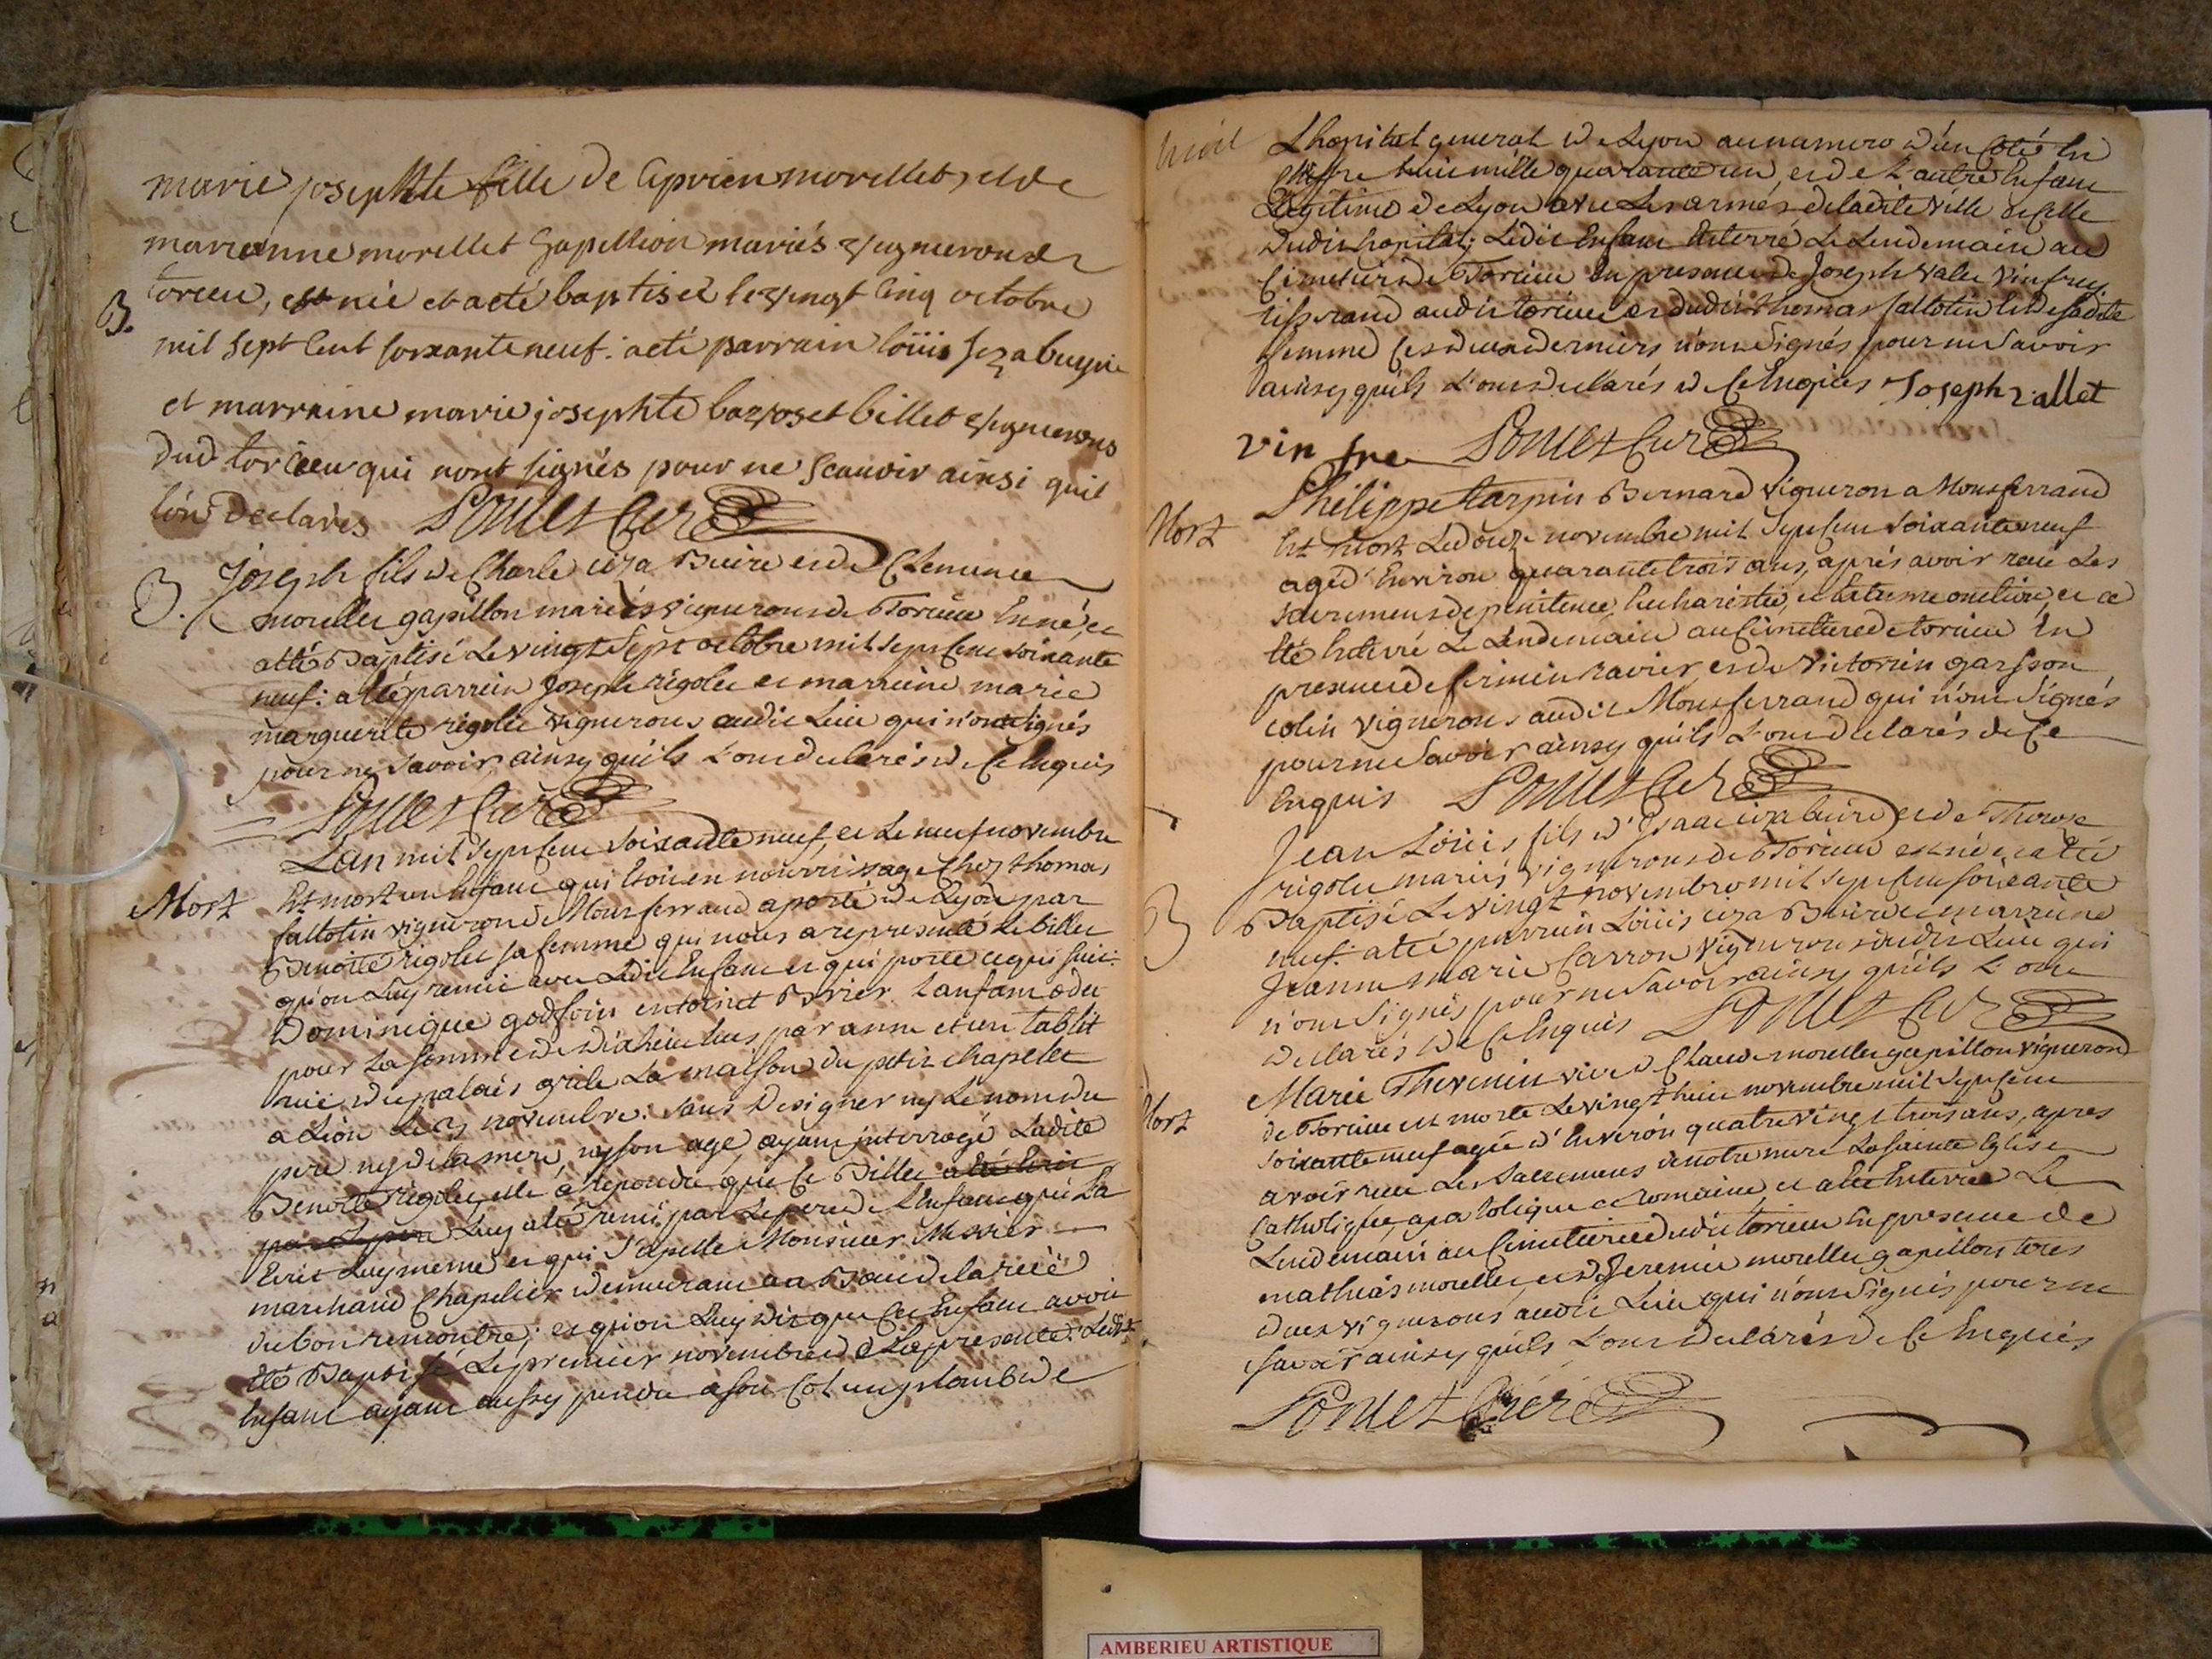 marie josephte fille de Ciprien morellet, et de
marianne morellet Gapillion mariés vignerons de
B. torcieu, est née et a eté baptiseé le vingt cinq octobre
mil sept cent soixante neuf: a eté parrain loüis
et marraine marie josephte bozjoset billet vignerons
dud torcieu qui nont signés pour ne scauvoir ainsi quil
lónt declarés Ponect Curé
B. Joseph fils de Charle ciza Buire et de Clemence
morellet gapillon mariés vignerons de Torcieu est né, et
a eté Baptisé Le vingt Sept octobre mil sept cent soixante
neuf: a eté parrain Joseph rigolet et marraine marie
marguerite rigolet vignerons audit Lieu qui n'ont signés
pour ne Savoir ainsy quils L'ont declarés de Ce Enquis
Ponect Curé
Lan mil Sept Cent Soixante neuf, et Le neuf novembre
Mort Est mort un Enfant qui Etoit en nourrissage Chez thomas
fallotin vigneron de Montferrand aporté de Lyon par
Benoite rigolet sa femme qui nous a representé Le billet
qu'on Luy remit avec Ledit Enfant et qui porte ce qui suit:
Dominique entoinet Brier Lanfam
pour La somme de par anne et un tablit
rue du palais La maison du petit Chapelet
a Lion Le novembre: sans Designer ny Le nom du
pere ny de la mere, ny son age, ayant interrogé Ladite
Benoite rigolet, elle a repondu que Ce Billet a été Ecrit
par Luy a eté remis par Le pere de L'Enfant qui La
Ecrit Luy meme et qui S'apelle Monsieur Messier
marchand Chapelier demeurant au Bout de la rüe
du bon rencontre; et qu'on Luy dit que Cet Enfant avoit
été Baptisé Le premier novembre de La presente: Ledit
Enfant ayant aussy pendu a son Col un plomb de
L'hopital general de Lyon au numero d'un Coté En
Chiffre huit mille quarante un, et de L'autre Enfant
Legitime de Lyon avec Les armes de ladite ville et Celle
dudit hopital; Ledit Enfant Enterré Le Lendemain au
Cimetiere de Torcieu En presence de Joseph valet vinfrey
tisserand audit torcieu et dudit thomas fallotin et de sadite
femme Ces deux derniers n'ont Signés pour ne Savoir
ainsy quils L'ont declarés de Ce Enquis Joseph vallet
vin fre Ponect Curé
Philippe tarpin Bernard vigneron a Montferrand
Mort Est Mort Le douze novembre mil Sept Cent Soixante neuf
agé d'Environ quarante trois ans, aprés avoir reçu Les
Sacremens de penitence, Eucharistie, et Extreme onction, et a
été Enterré Le Lendemain au Cimetiere de torcieu En
presence de firmin ravier, et de victorin garsson
colin vignerons audit Montferrand qui n'ont Signés
pour ne Savoir ainsy quils L'ont declarés de Ce
Enquis Ponect Curé
Jean Loüis fils d'Isaac ciza buire et de Therese
rigolet mariés vignerons de Torcieu est né et a eté
B Baptisé Le vingt novembre mil Sept Cent soixante
neuf: a eté parrain Loüis ciza Buire et marraine
Jeanne Marie Carron vignerons dudit Lieu qui
n'ont Signés pour ne Savoir ainsy quils L'ont
declarés de Ce Enquis Ponect Curé
Marie Thevenin vive de Claude morellet gapillon vigneron
Mort de Torcieu est morte Le vingt huit novembre mil Sept Cent
Soixante neuf agée d'Environ quatre vingt trois ans, apres
avoir reçu Les Sacremens de notre mere La sainte Eglise
Catholique, apostolique et romaine, et a eté Enterrée Le
Lendemain au Cimetiere dudit torcieu En presence de
mathias morellet, et de Jeremie morellet gapillon tous
deux vignerons audit Lieu qui n'ont Signés pour ne
Savoir ainsy quils L'ont declarés de Ce Enquis
Ponect Curé
AMBERIEU ARTISTIQUE